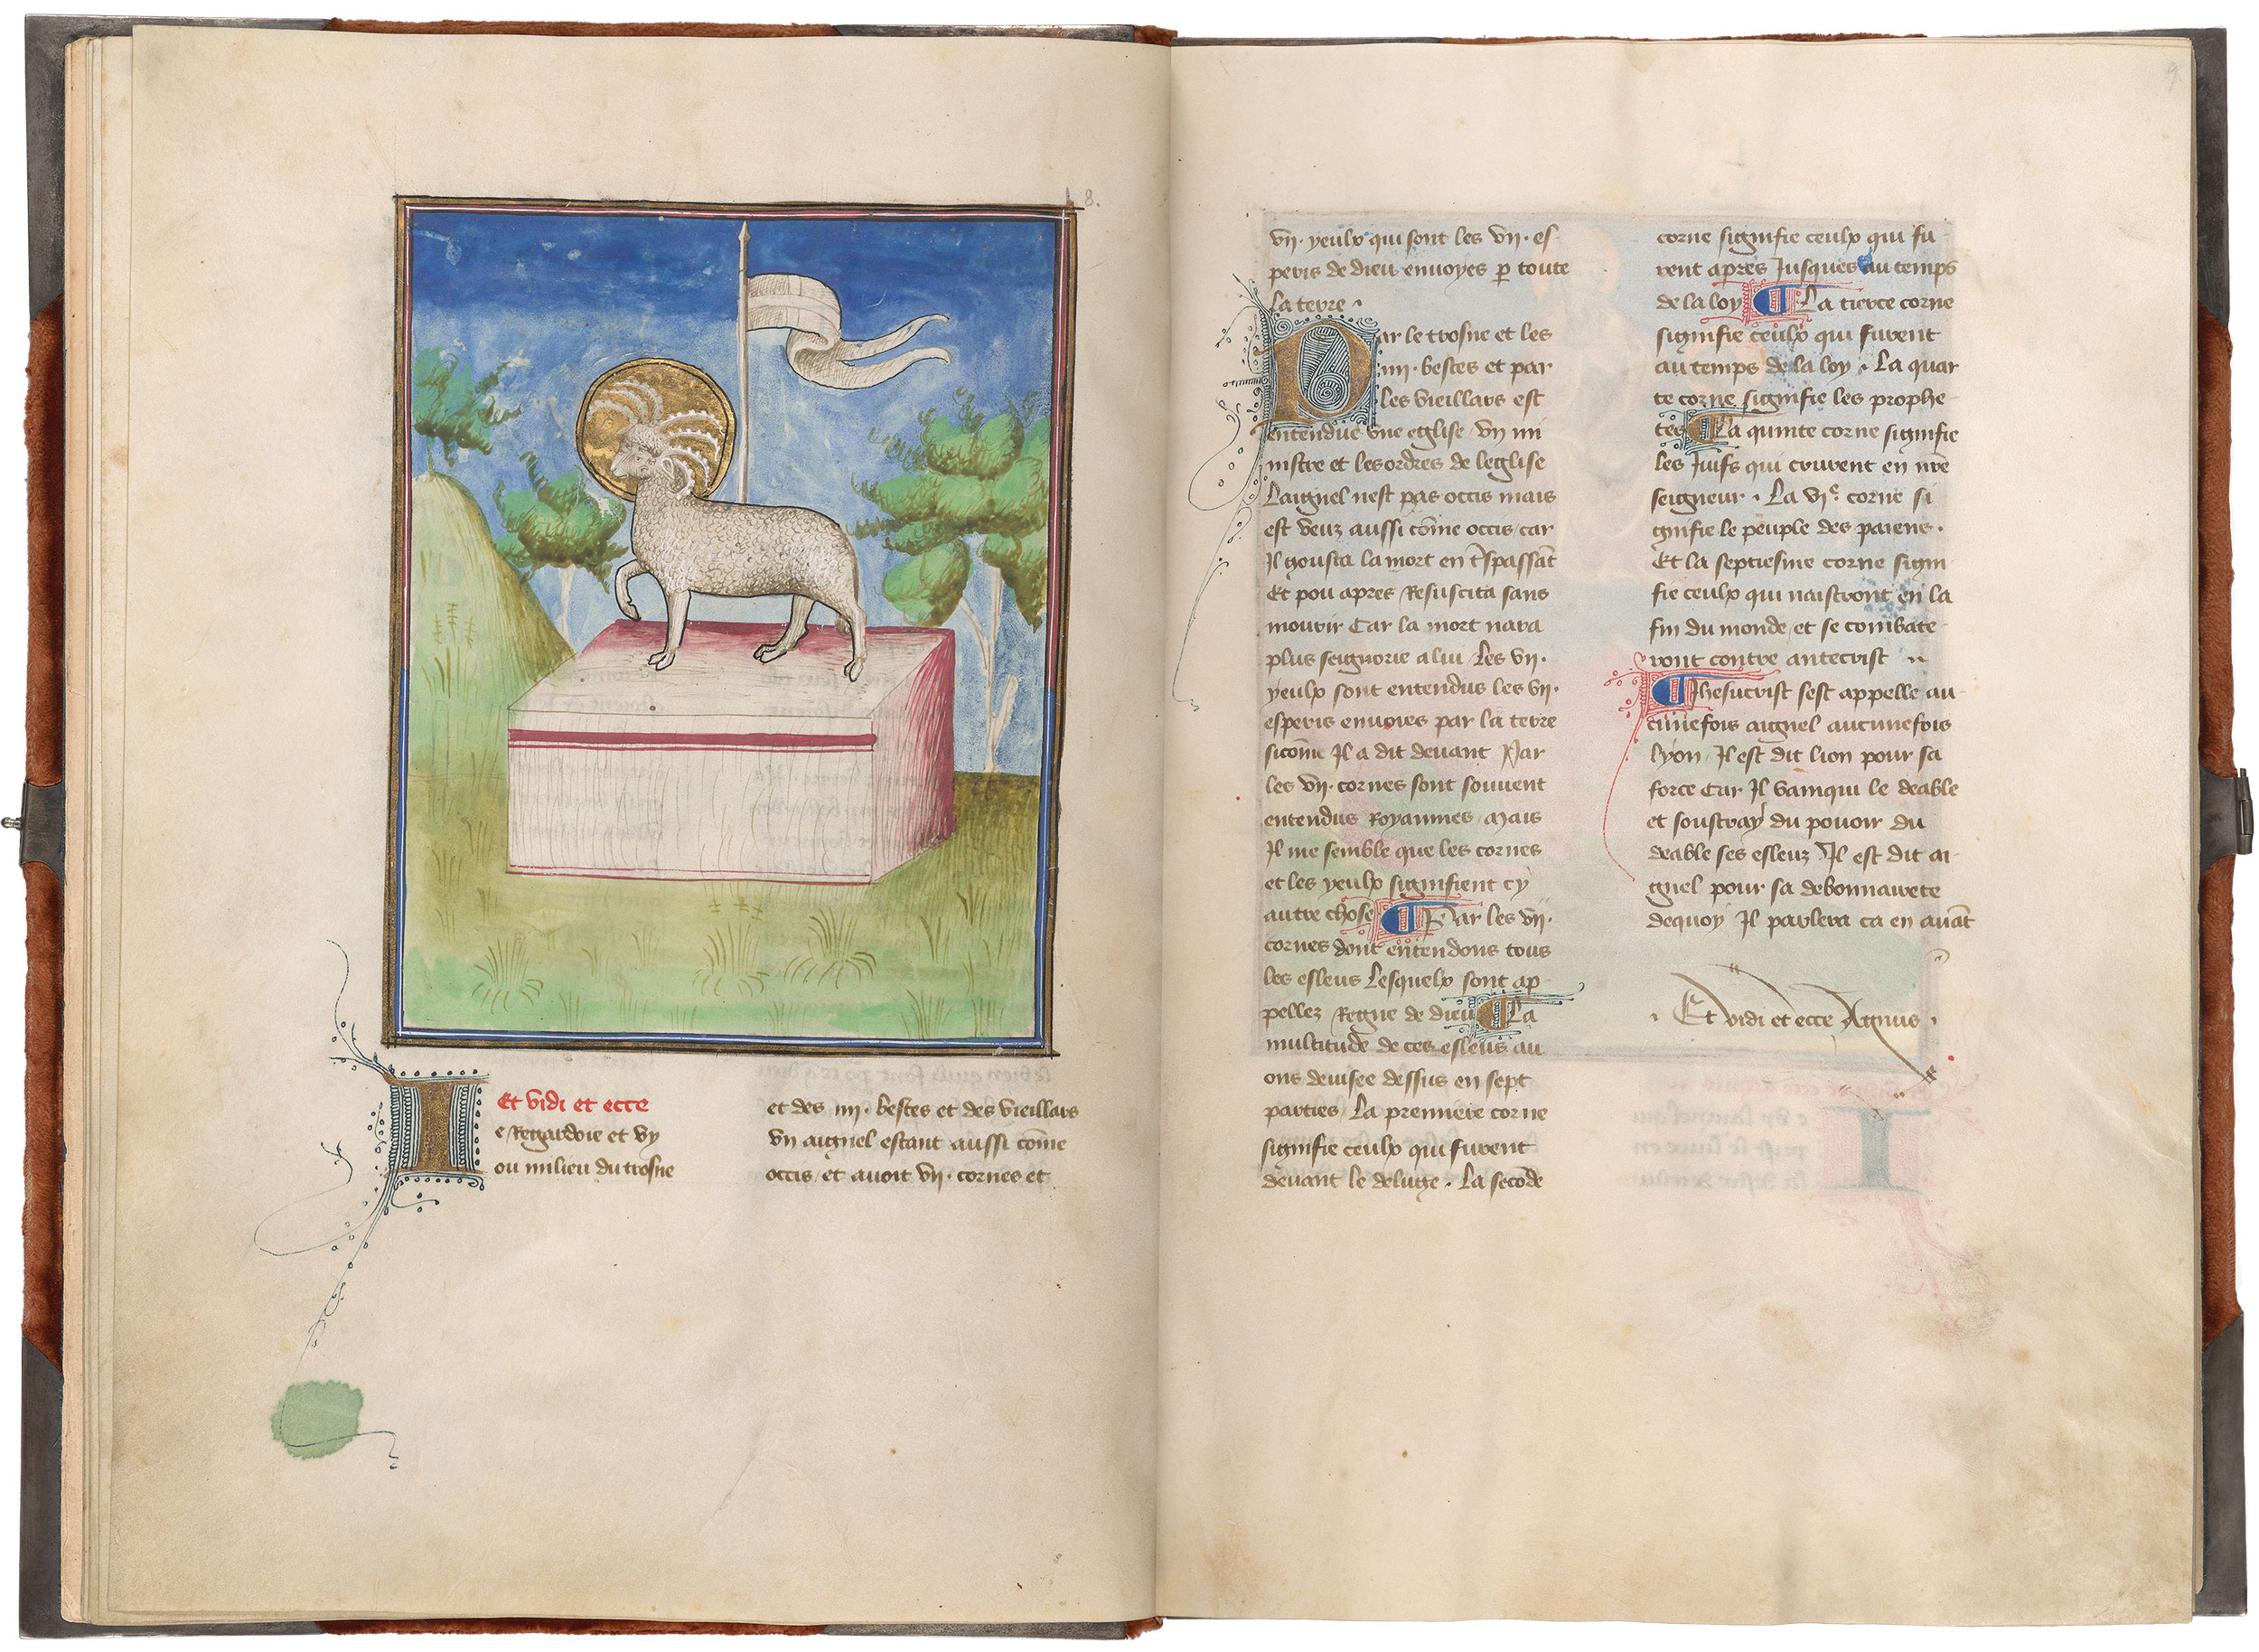 8.
Et vidi et ecce
e Regardoie et vy
ou milieu du trosne
et des iiii. bestes et des vieillars
vn aignel estant aussi cõme
occis et auoit vii. cornes et
9
vii. yeulx qui sont les vii. es-
peris de dieu enuoyes p toute
la terre.
Par le trosne et les
iiii. bestes et par
les vieillars est
entendue vne eglise vn mi
nistre et les ordres de leglise
Laignel nest pas occis mais
est veuz aussi cõme occis car
Il gousta la mort en t̃spassãt
Et pou apres Resuscita sans
mourir Car la mort nara
plus seignorie a lui Les vii.
yeulx sont entendus les vii.
esperis enuoies par la terre
sicõme Il a dit deuant Par
les vii. cornes sont souuent
entendus Royaumes Mais
Il me semble que les cornes
et les yeulx signifient cy
autre chose ¶ Par les vii.
cornes dont entendons tous
les esleus Lesquelx sont ap-
pellez Regne de dieu ¶ La
multitude de ces esleus au
ons deuisee dessus en sept
parties La premiere corne
signifie ceulx qui furent
deuant le deluge. La secõde
corne signifie ceulx qui fu-
rent apres Jusques au temps
de la loy ¶ La tierce corne
signifie ceulx qui furent
au temps de la loy. La quar
te corne signifie les prophe-
tes ¶ La quinte corne signifie
les Juifs qui crurent en nr̃e
seigneur. La vi^e. corne si
gnifie le peuple des paiens.
Et la septiesme corne signi
fie ceulx qui naistront en la
fin du monde et se combate-
ront contre antecrist
¶ Jhesucrist sest appelle au-
cunefois aignel aucunefois
lyon Il est dit lion pour sa
force Car Il vainqui le deable
et soustray du pouoir du
deable ses esleuz Il est dit ai-
gnel pour sa debonnairete
dequoy Il parlera ca en auãt
. Et vidi et ecce Agnus .